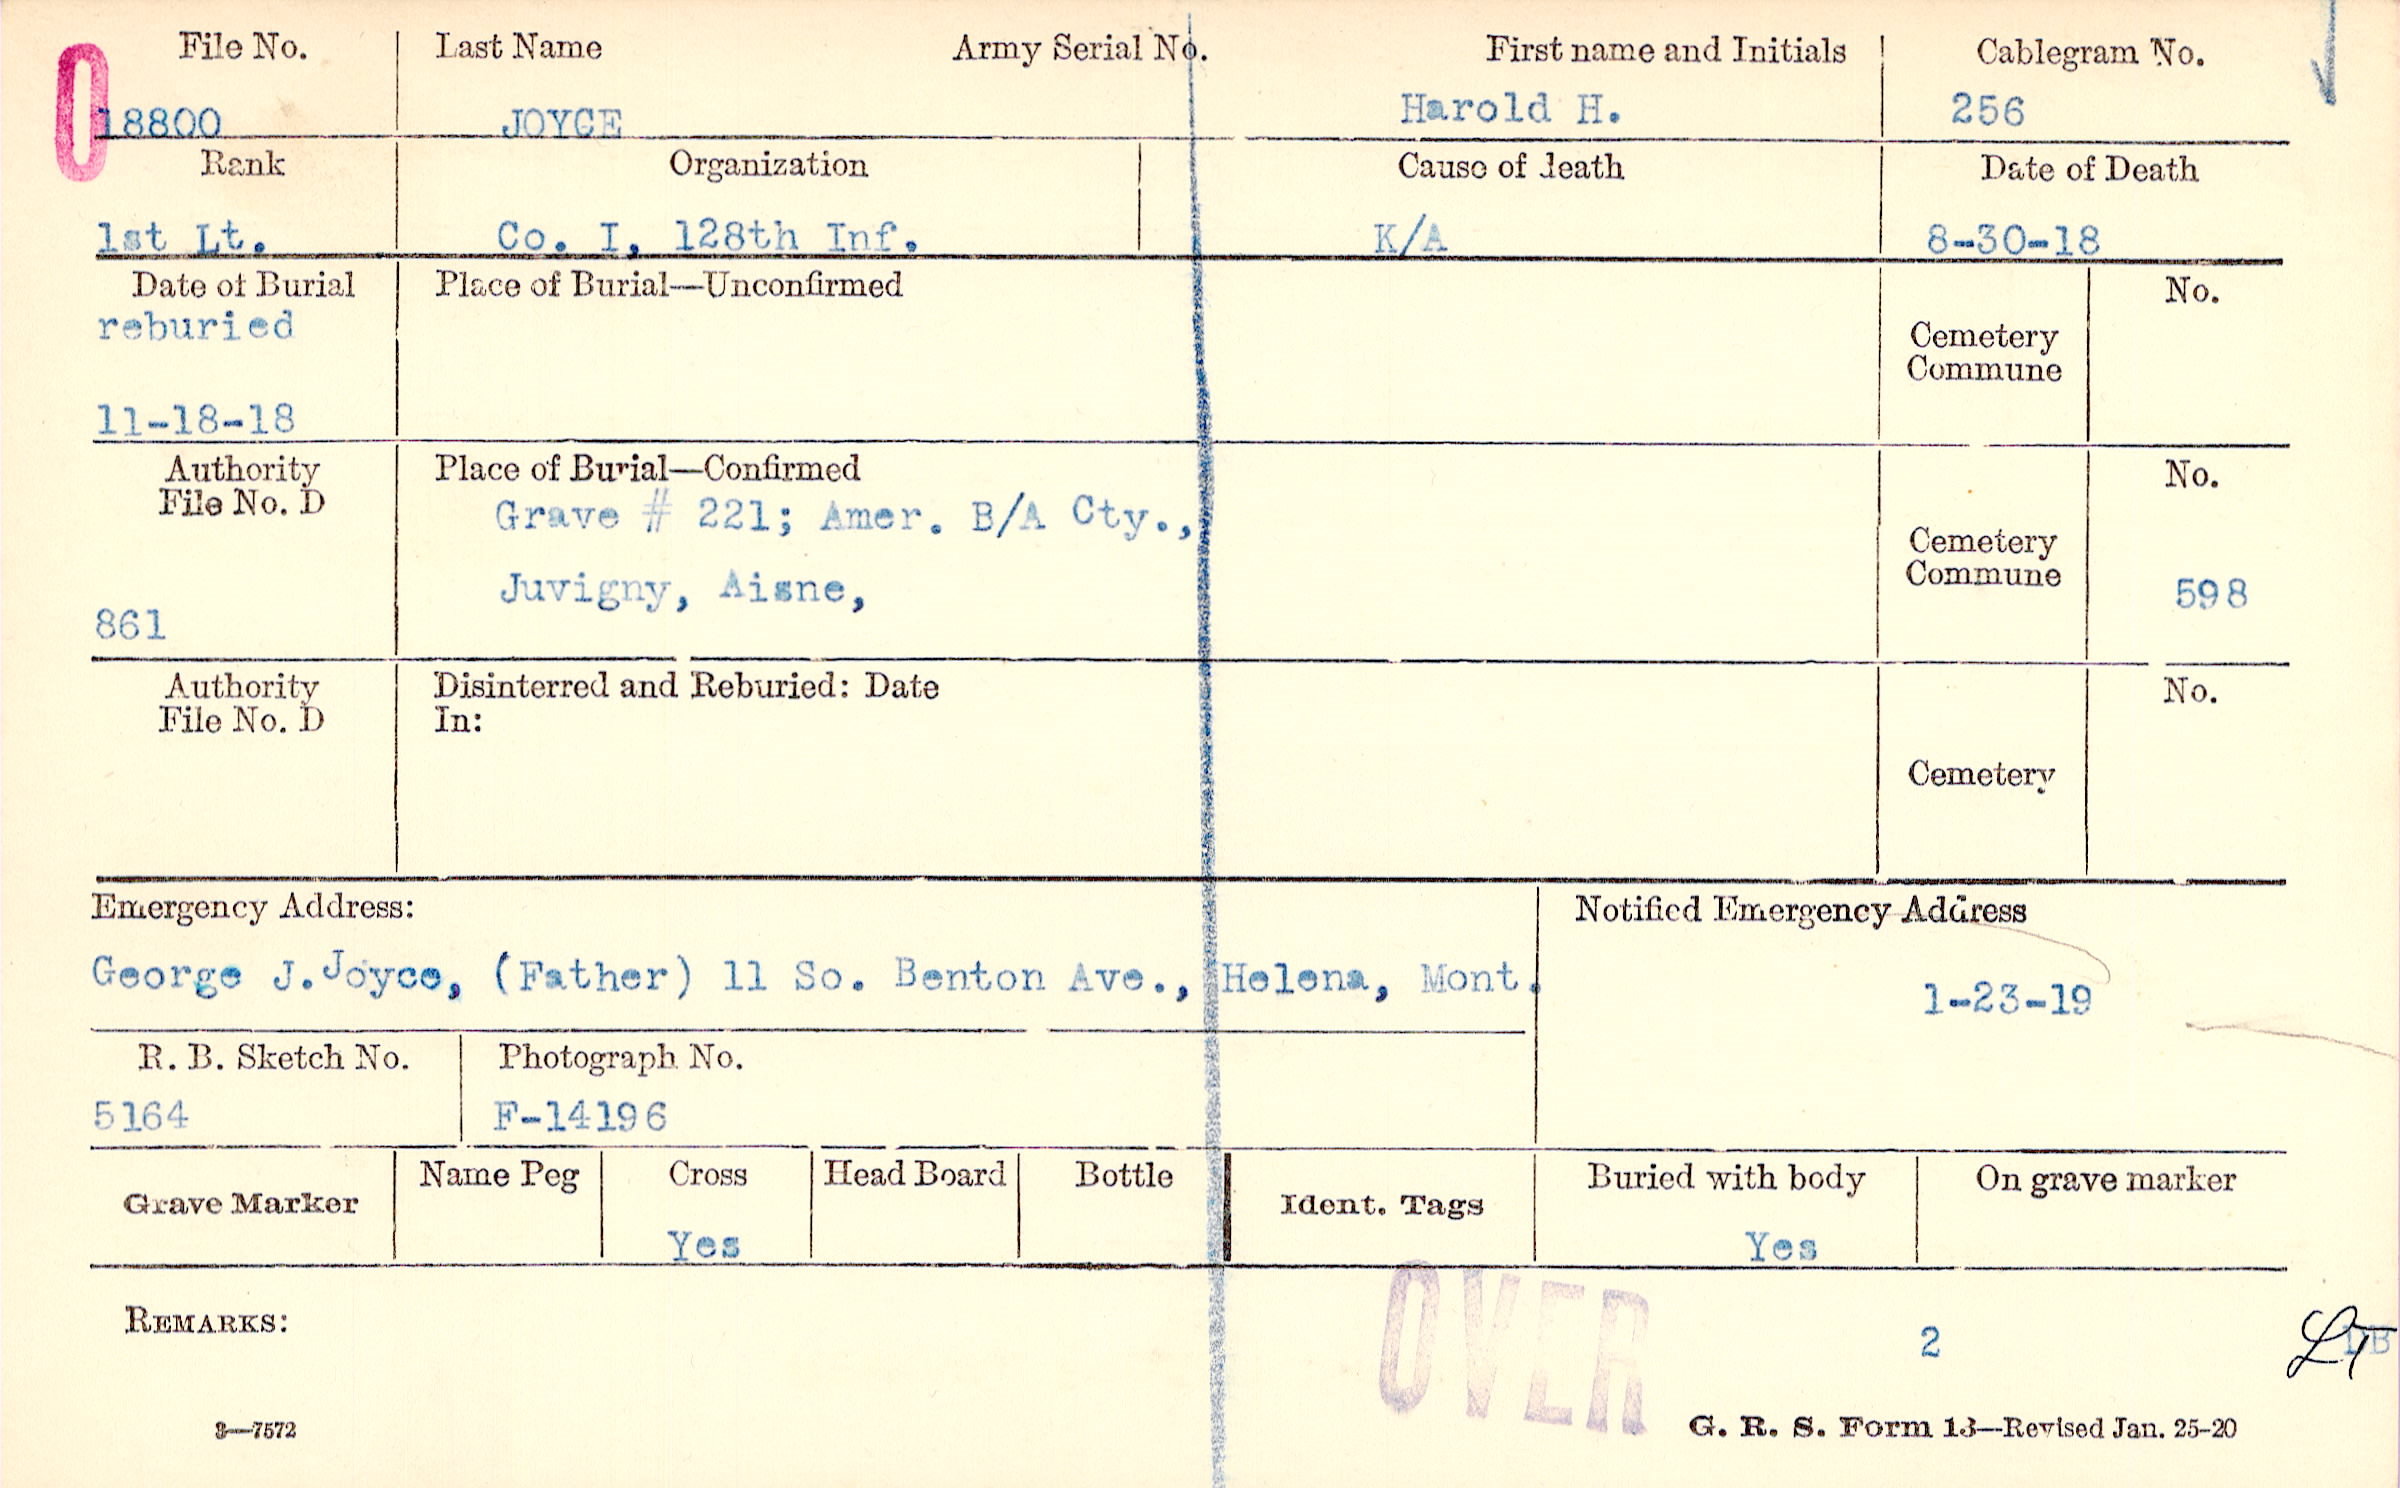 File No. Last Name Army Serial No. First name and Initials Cablegram No.
0
18800 JOYCE Harold H. 256
Rank Organization Cause of death Date of Death
1st Lt. Co. I, 128th Inf. K/A 8-30-18
Date of Burial Place of Burial—Unconfirmed No.
reburied
Cemetery
Commune
11-18-18
Authority Place of Burial—Confirmed No.
File No. D
Grave # 221; Amer. B/A Cty.,
Cemetery
Commune
Juvigny, Aisne, 598
861
Authority Disinterred and Reburied: Date No.
File No. D In:
Cemetery
Emergency Address: Notified Emergency Address
George J. Joyce, (Father) 11 So. Benton Ave., Helena, Mont. 1-23-19
R. B. Sketch No. Photograph No.
5164 F-14196
Grave Marker Name Peg Cross Head Board Bottle Ident. Tags Buried with body On grave marker
Yes Yes
OVER
REMARKS: 2
3—7572 G. R. S. Form 13—Revised Jan. 25-20